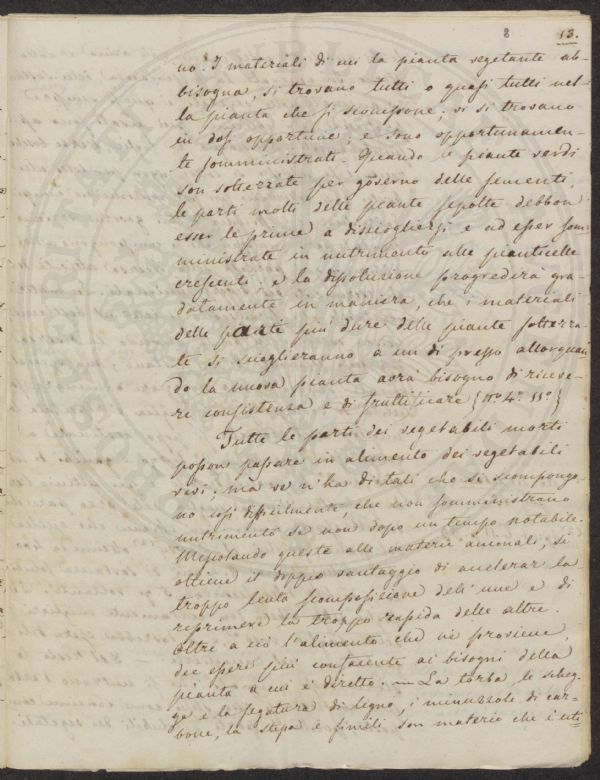 8 13.
no. I materiali di cui la pianta vegetante ab-
bisogna, si trovano tutti o quasi tutti nel-
la pianta che si scompone; vi si trovano
in dosi opportune, e sono opportunamen-
te somministrati. Quando le piante verdi
son sotterrate per governo delle sementi,
le parti molli delle piante sepolte debbon'
esser le prime a discogliersi e ad esser som-
ministrate in nutrimento alle pianticelle
crescenti, e la dissoluzione progrederà gra-
datamente in maniera, che i materiali
delle parti più dure delle piante sotterra-
te si scioglieranno a un di presso allorquan-
do la nuova pianta avrà bisogno di riceve-
re consistenza e di fruttificare {n.o 4.o 11.o}
Tutte le parti dei vegetabili morti
posson passare in alimento dei vegetabili
vivi; mà ve n'ha di tali che si scompongo-
no così difficilmente, che non somministrano
nutrimento se non dopo un tempo notabile.
Mescolando queste alle materie animali, si
ottiene il doppio vantaggio di accelerar la
troppo lenta scomposizione dell'une e di
reprimere la troppo rapida delle altre.
Oltre a ciò l'alimento che ne proviene,
dee essere più confacente ai bisogni della
pianta a cui è diretto. — La torba, le scheg-
ge e la segatura di legno, i minuzzoli di car-
bone, la stipa e simili son materie che è uti-